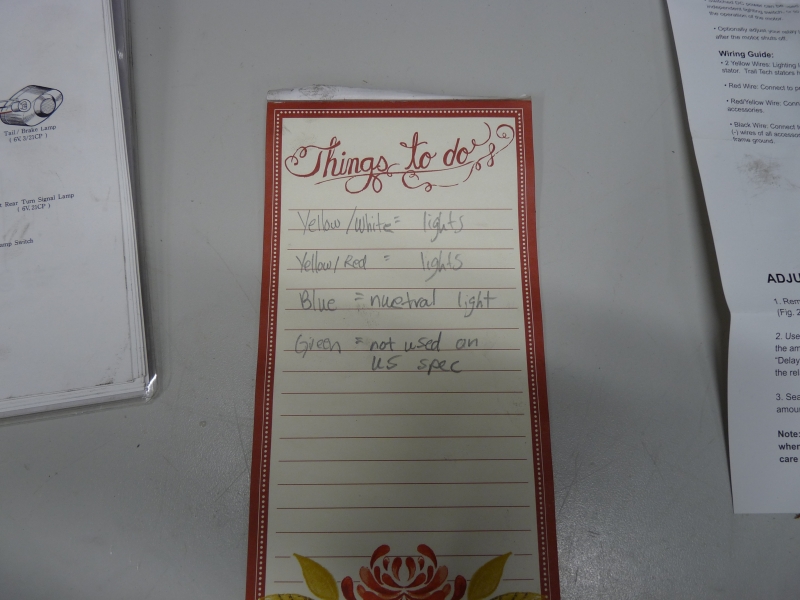 Tail / Brake Lamp
( 6V, 3/21CP )
Rear Turn Signal Lamp
( 6V, 21CP )
Switch
Things to do
Yellow/White = lights
Yellow/Red = lights
Blue = nuetral light
Green = not used on
US spec
independent lighting
the operation of the motor.
• Optionally adjust your
after the motor shuts off.
Wiring Guide:
• 2 Yellow Wires: Lighting
stator. Trail Tech stators
• Red Wire: Connect to
• Red/Yellow Wire:
accessories.
• Black Wire: Connect
(-) wires of all
frame ground.
1. 
(Fig. 2
2. Use
the
"Delay
the
3.
Note:
care